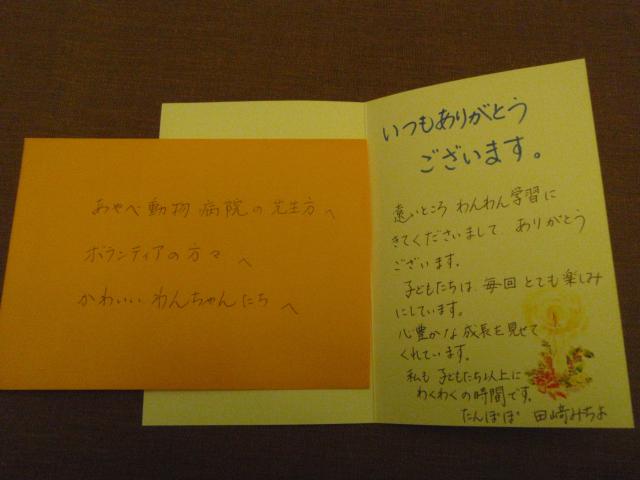 あやべ動物病院の先生方へ
ボランティアの方々へ
かわいいわんちゃんたちへ
いつもありがとう
ございます。
遠いところ わんわん学習に
きてくださいまして ありがとう
ございます。
子どもたちは、毎回 とても楽しみ
にしています。
心豊かな成長を見せて
くれています。
私も 子どもたち以上に
わくわくの時間です。
たんぽぽ 田﨑みちよ